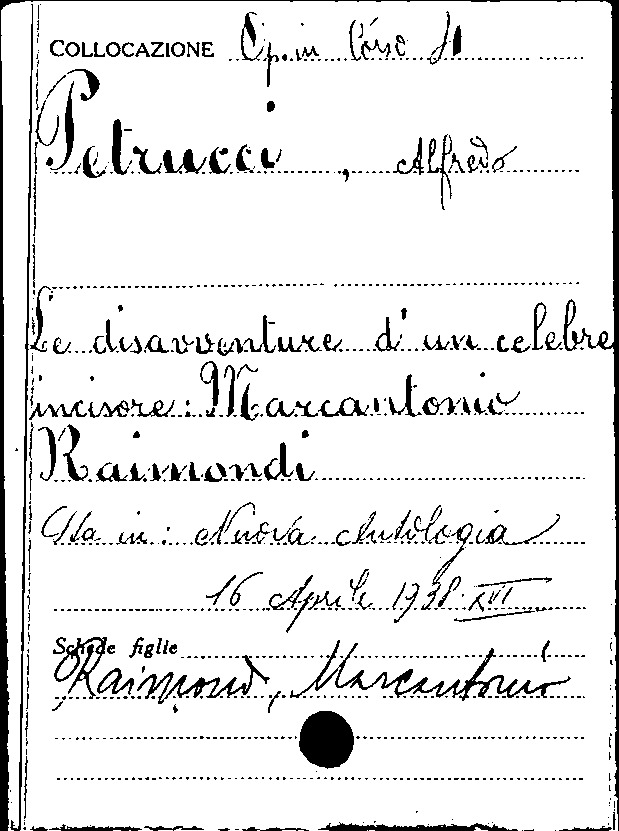 COLLOCAZIONE Op. in Corso
Petrucci, Alfredo
Le disavventure d'un celebre
incisore: Marcantonio
Raimondi
Sta in: Nuova Antologia
16 Aprile 1938. XVI
Schede figlie
Raimondi, Marcantonio